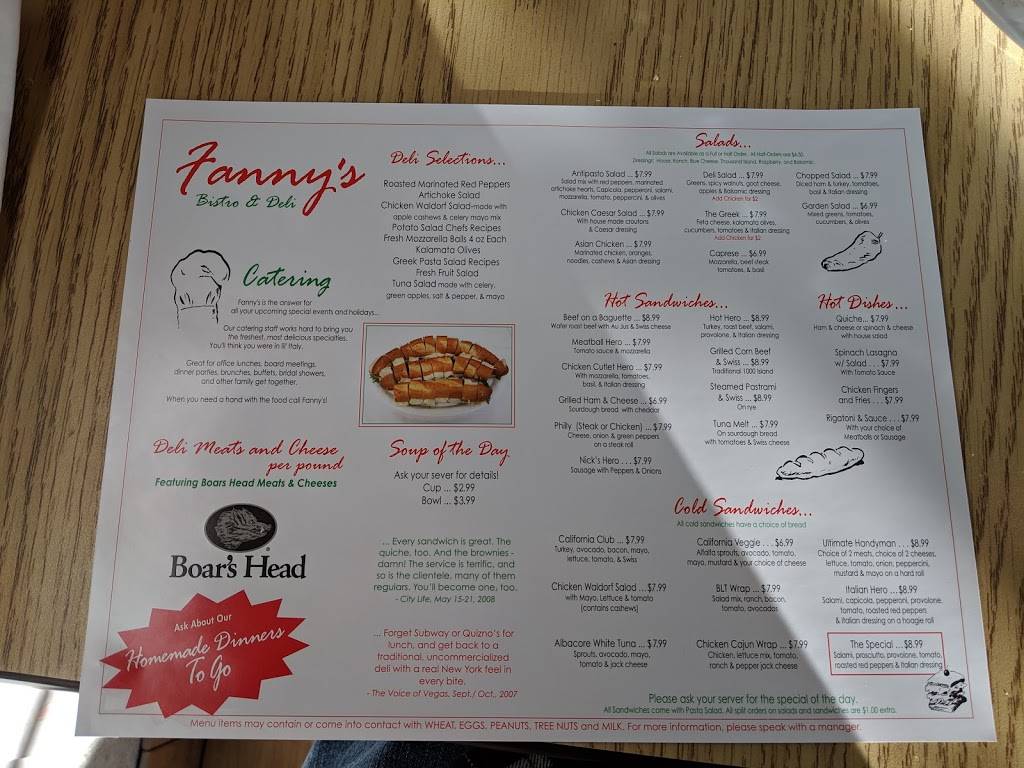 Fanny's
Bistro & Deli
Catering
Fanny's is the answer for
all your upcoming special events and holidays...
Our catering staff works hard to bring you
the freshest, most delicious specialties.
You'll think you were in lil' Italy.
Great for office lunches, board meetings,
dinner parties, brunches, buffets, bridal showers,
and other family get together.
When you need a hand with the food call Fanny's!
Deli Meats and Cheese
per pound
Featuring Boars Head Meats & Cheeses
Boar's Head
Ask About Our
Homemade Dinners
To Go
Deli Selections...
Roasted Marinated Red Peppers
Artichoke Salad
Chicken Waldorf Salad-made with
apple cashews & celery mayo mix
Potato Salad Chefs Recipes
Fresh Mozzarella Balls 4 oz Each
Kalamata Olives
Greek Pasta Salad Recipes
Fresh Fruit Salad
Tuna Salad made with celery,
green apples, salt & pepper, & mayo
Soup of the Day
Ask your sever for details!
Cup ... $2.99
Bowl ... $3.99
... Every sandwich is great. The
quiche, too. And the brownies -
damn! The service is terrific, and
so is the clientele, many of them
regulars. You'll become one, too.
- City Life, May 15-21, 2008
... Forget Subway or Quizno's for
lunch, and get back to a
traditional, uncommercialized
deli with a real New York feel in
every bite.
- The Voice of Vegas, Sept./ Oct., 2007
Salads...
All Salads are Available as a Full or Half Order. All Half-Orders are $6.50.
Dressings: House, Ranch, Blue Cheese, Thousand Island, Raspberry, and Balsamic.
Antipasto Salad ... $7.99
Salad mix with red peppers, marinated
artichoke hearts, Capicola, pepperoni, salami,
mozzarella, tomato, pepperoncini, & olives
Chicken Caesar Salad ... $7.99
With house made croutons
& Caesar dressing
Asian Chicken ... $7.99
Marinated chicken, oranges,
noodles, cashews & Asian dressing
Deli Salad ... $7.99
Greens, spicy walnuts, goat cheese,
apples & balsamic dressing
Add Chicken for $2
The Greek ... $7.99
Feta cheese, kalamata olives,
cucumbers, tomatoes & Italian dressing
Add Chicken for $2
Caprese ... $6.99
Mozzarella, beef steak
tomatoes, & basil
Chopped Salad ... $7.99
Diced ham & turkey, tomatoes,
basil & Italian dressing
Garden Salad ... $6.99
Mixed greens, tomatoes,
cucumbers, & olives
Hot Sandwiches...
Beef on a Baguette ... $8.99
Wafer roast beef with Au Jus & Swiss cheese
Meatball Hero ... $7.99
Tomato sauce & mozzarella
Chicken Cutlet Hero ... $7.99
With mozzarella, tomatoes,
basil, & Italian dressing
Grilled Ham & Cheese ... $6.99
Sourdough bread with cheddar
Philly (Steak or Chicken) ... $7.99
Cheese, onion & green peppers
on a steak roll
Nick's Hero . . . $7.99
Sausage with Peppers & Onions
Hot Hero ... $8.99
Turkey, roast beef, salami,
provolone, & Italian dressing
Grilled Corn Beef
& Swiss ... $8.99
Traditional 1000 Island
Steamed Pastrami
& Swiss ... $8.99
On rye
Tuna Melt ... $7.99
On sourdough bread
with tomatoes & Swiss cheese
Hot Dishes...
Quiche... $7.99
Ham & cheese or spinach & cheese
with house salad
Spinach Lasagna
w/ Salad . . . $7.99
With Tomato Sauce
Chicken Fingers
and Fries . . . $7.99
Rigatoni & Sauce . . . $7.99
With your choice of
Meatballs or Sausage
Cold Sandwiches...
All cold sandwiches have a choice of bread
California Club ... $7.99
Turkey, avocado, bacon, mayo,
lettuce, tomato, & Swiss
Chicken Waldorf Salad . . .$7.99
with Mayo, Lettuce & tomato
(contains cashews)
Albacore White Tuna ... $7.99
Sprouts, avocado, mayo,
tomato & jack cheese
California Veggie . . . $6.99
Alfalfa sprouts, avocado, tomato,
mayo, mustard & your choice of cheese
BLT Wrap ... $7.99
Salad mix, ranch, bacon,
tomato, avocados
Chicken Cajun Wrap ... $7.99
Chicken, lettuce mix, tomato,
ranch & pepper jack cheese
Ultimate Handyman . . .$8.99
Choice of 2 meats, choice of 2 cheeses,
lettuce, tomato, onion, peppercini,
mustard & mayo on a hard roll
Italian Hero ... $8.99
Salami, capicola, pepperoni, provolone,
tomato, roasted red peppers
& Italian dressing on a hoagie roll
The Special ... $8.99
Salami, prosciutto, provolone, tomato,
roasted red peppers & Italian dressing
Please ask your server for the special of the day.
All Sandwiches come with Pasta Salad. All split orders on salads and sandwiches are $1.00 extra.
Menu items may contain or come into contact with WHEAT, EGGS, PEANUTS, TREE NUTS and MILK. For more information, please speak with a manager.